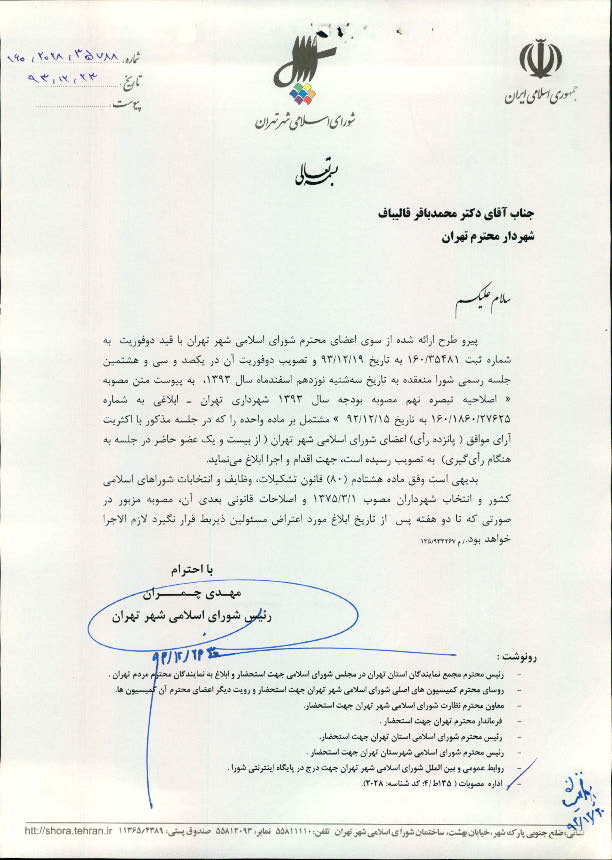 جمهوری اسلامی ایران
شورای اسلامی شهر تهران
شماره: ۱۶۰/۲۰۲۸/۳۵۷۸۸
تاریخ: ۹۳/۱۲/۲۳
پیوست:
بسمه تعالی
جناب آقای دکتر محمدباقر قالیباف
شهردار محترم تهران
سلام علیکم
پیرو طرح ارائه شده از سوی اعضای محترم شورای اسلامی شهر تهران با قید دوفوریت به
شماره ثبت ۱۶۰/۳۵۴۸۱ به تاریخ ۹۳/۱۲/۱۹ و تصویب دوفوریت آن در یکصد و سی و هشتمین
جلسه رسمی شورا منعقده به تاریخ سه‌شنبه نوزدهم اسفندماه سال ۱۳۹۳، به پیوست متن مصوبه
« اصلاحیه تبصره نهم مصوبه بودجه سال ۱۳۹۳ شهرداری تهران ـ ابلاغی به شماره
۱۶۰/۱۸۶۰/۲۷۶۲۵ به تاریخ ۹۲/۱۲/۱۵ » مشتمل بر ماده واحده را که در جلسه مذکور با اکثریت
آرای موافق ( پانزده رأی) اعضای شورای اسلامی شهر تهران ( از بیست و یک عضو حاضر در جلسه به
هنگام رأی‌گیری) به تصویب رسیده است، جهت اقدام و اجرا ابلاغ می‌نماید.
بدیهی است وفق ماده هشتادم (۸۰) قانون تشکیلات، وظایف و انتخابات شوراهای اسلامی
کشور و انتخاب شهرداران مصوب ۱۳۷۵/۳/۱ و اصلاحات قانونی بعدی آن، مصوبه مزبور در
صورتی که تا دو هفته پس از تاریخ ابلاغ مورد اعتراض مسئولین ذیربط قرار نگیرد لازم الاجرا
خواهد بود./ م ۱۳۵/۹۳۴۲۶۷
با احترام
مهدی چمران
رئیس شورای اسلامی شهر تهران
رونوشت :
- رئیس محترم مجمع نمایندگان استان تهران در مجلس شورای اسلامی جهت استحضار و ابلاغ به نمایندگان محترم مردم تهران .
- روسای محترم کمیسیون های اصلی شورای اسلامی شهر تهران جهت استحضار و رویت دیگر اعضای محترم آن کمیسیون ها.
- معاون محترم نظارت شورای اسلامی شهر تهران جهت استحضار.
- فرماندار محترم تهران جهت استحضار .
- رئیس محترم شورای اسلامی استان تهران جهت استحضار.
- رئیس محترم شورای اسلامی شهرستان تهران جهت استحضار .
- روابط عمومی و بین الملل شورای اسلامی شهر تهران جهت درج در پایگاه اینترنتی شورا .
- اداره مصوبات ( ۱۳۵ط/۴؛ کد شناسه: ۲۰۲۸).
نشانی: ضلع جنوبی پارک شهر، خیابان بهشت، ساختمان شورای اسلامی شهر تهران تلفن: ۵۵۸۱۱۱۱۰ نمابر: ۵۵۸۱۲۰۹۳ صندوق پستی: ۱۱۳۶۵/۴۳۸۹ http://shora.tehran.ir